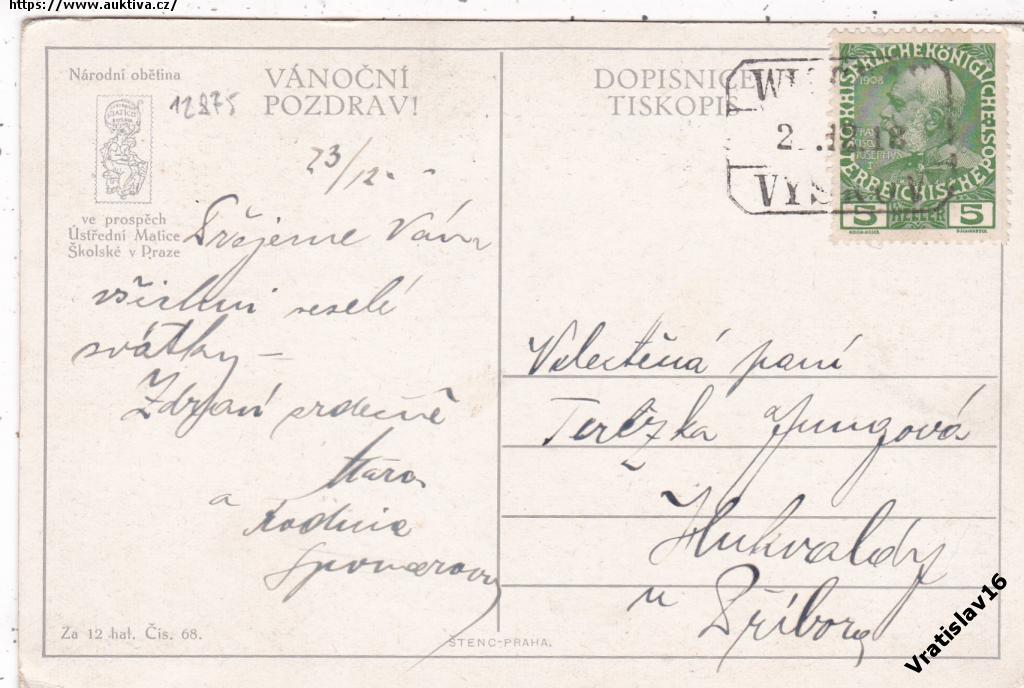 https://www.auktiva.cz/
Národní obětina
VÁNOČNÍ
POZDRAV!
12875
23/12
ve prospěch
Ústřední Matice
Školské v Praze
Přejeme Vám
všichni veselé
svátky –
Zdraví srdečně
a
rodina
Za 12 hal. Čís. 68.
ŠTENC-PRAHA.
DOPISNICE
TISKOPIS
WI
2 .12.18
VYŠKOV
1908
5 HELLER 5
Velectěná paní
Terezka Jungová
Hukvaldy
u Příbora
Vratislav16